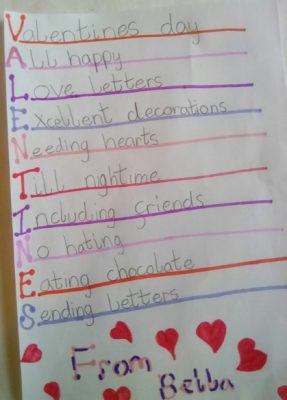 Valentines day
All happy
Love letters
Excellent decorations
Needing hearts
Till nightime
Including friends
No hating
Eating chocolate
Sending letters
From
Bella